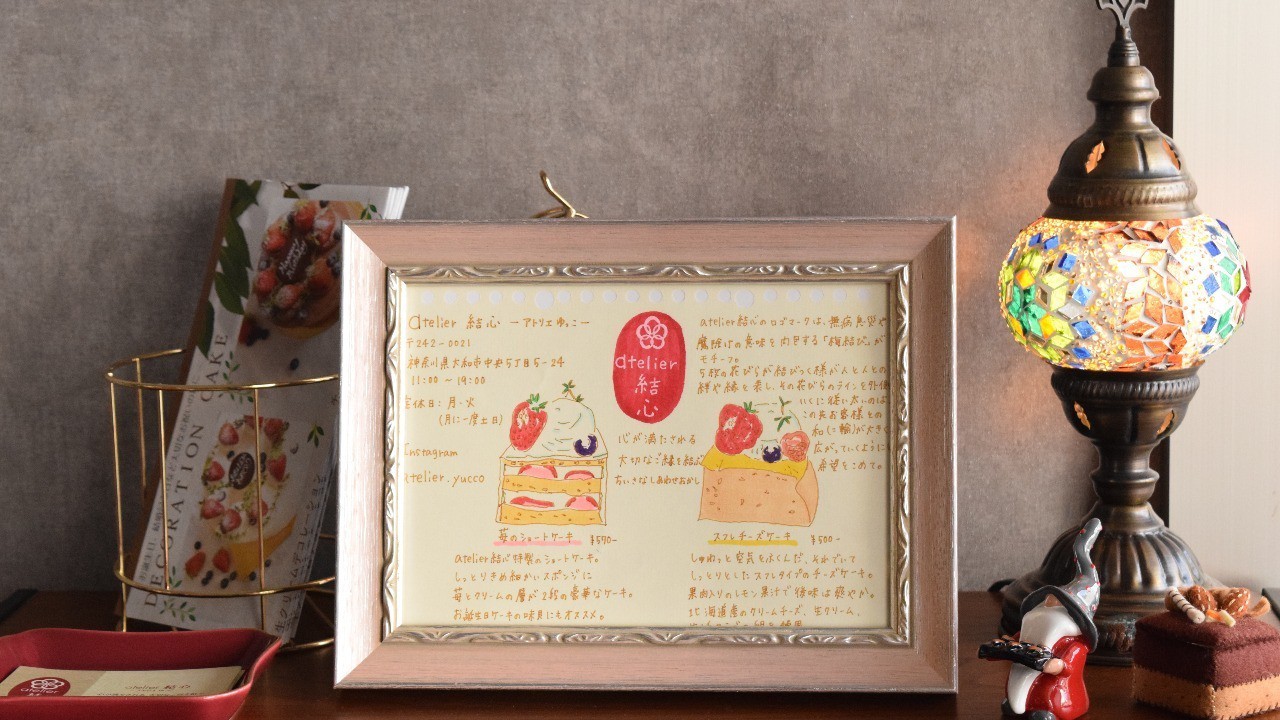 atelier 結心 ーアトリエゆっこー
〒242-0021
神奈川県大和市中央5丁目5-24
11:00 ～ 19:00
定休日：月・火
（月に一度土日）
Instagram
atelier.yucco
atelier
結
心
心が満たされる
大切なご縁を結ぶ
ちいさなしあわせおかし
atelier結心のロゴマークは、無病息災や
魔除けの意味を内包する「梅結び」が
モチーフ。
5枚の花びらが結びつく様が人と人との
絆や縁を表し、その花びらのラインを外側
いくに従い太いのは
この先お客様との
和（＝輪）が大きく
広がっていくように
希望をこめて。
苺のショートケーキ ¥570-
atelier結心特製のショートケーキ。
しっとりきめ細かいスポンジに
苺とクリームの層が2段の豪華なケーキ。
お誕生日ケーキの味見にもオススメ。
スフレチーズケーキ ¥500-
しゅわっと空気をふくんだ、それでいて
しっとりとしたスフレタイプのチーズケーキ。
果肉入りのレモン果汁で後味は爽やか。
北海道産のクリームチーズ、生クリーム、
DECORATION CAKE
生クリームデコレーション
atelier 結心